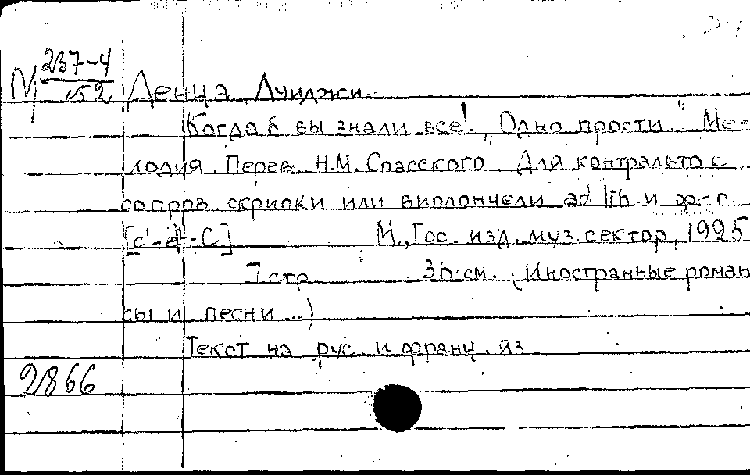 М 237-4
152 Денца, Луиджи.
Когда б вы знали все! „Одно прости." Ме-
лодия. Перев. Н.М. Спасского. Для контральто с
сопров. скрипки или виолончели ad lib и ф-п
[c'-d²-C] М., Гос. изд. муз. сектор, 1925
7 стр. 36 см. (Иностранные роман-
сы и песни ...)
Текст на рус. и франц. яз.
2866